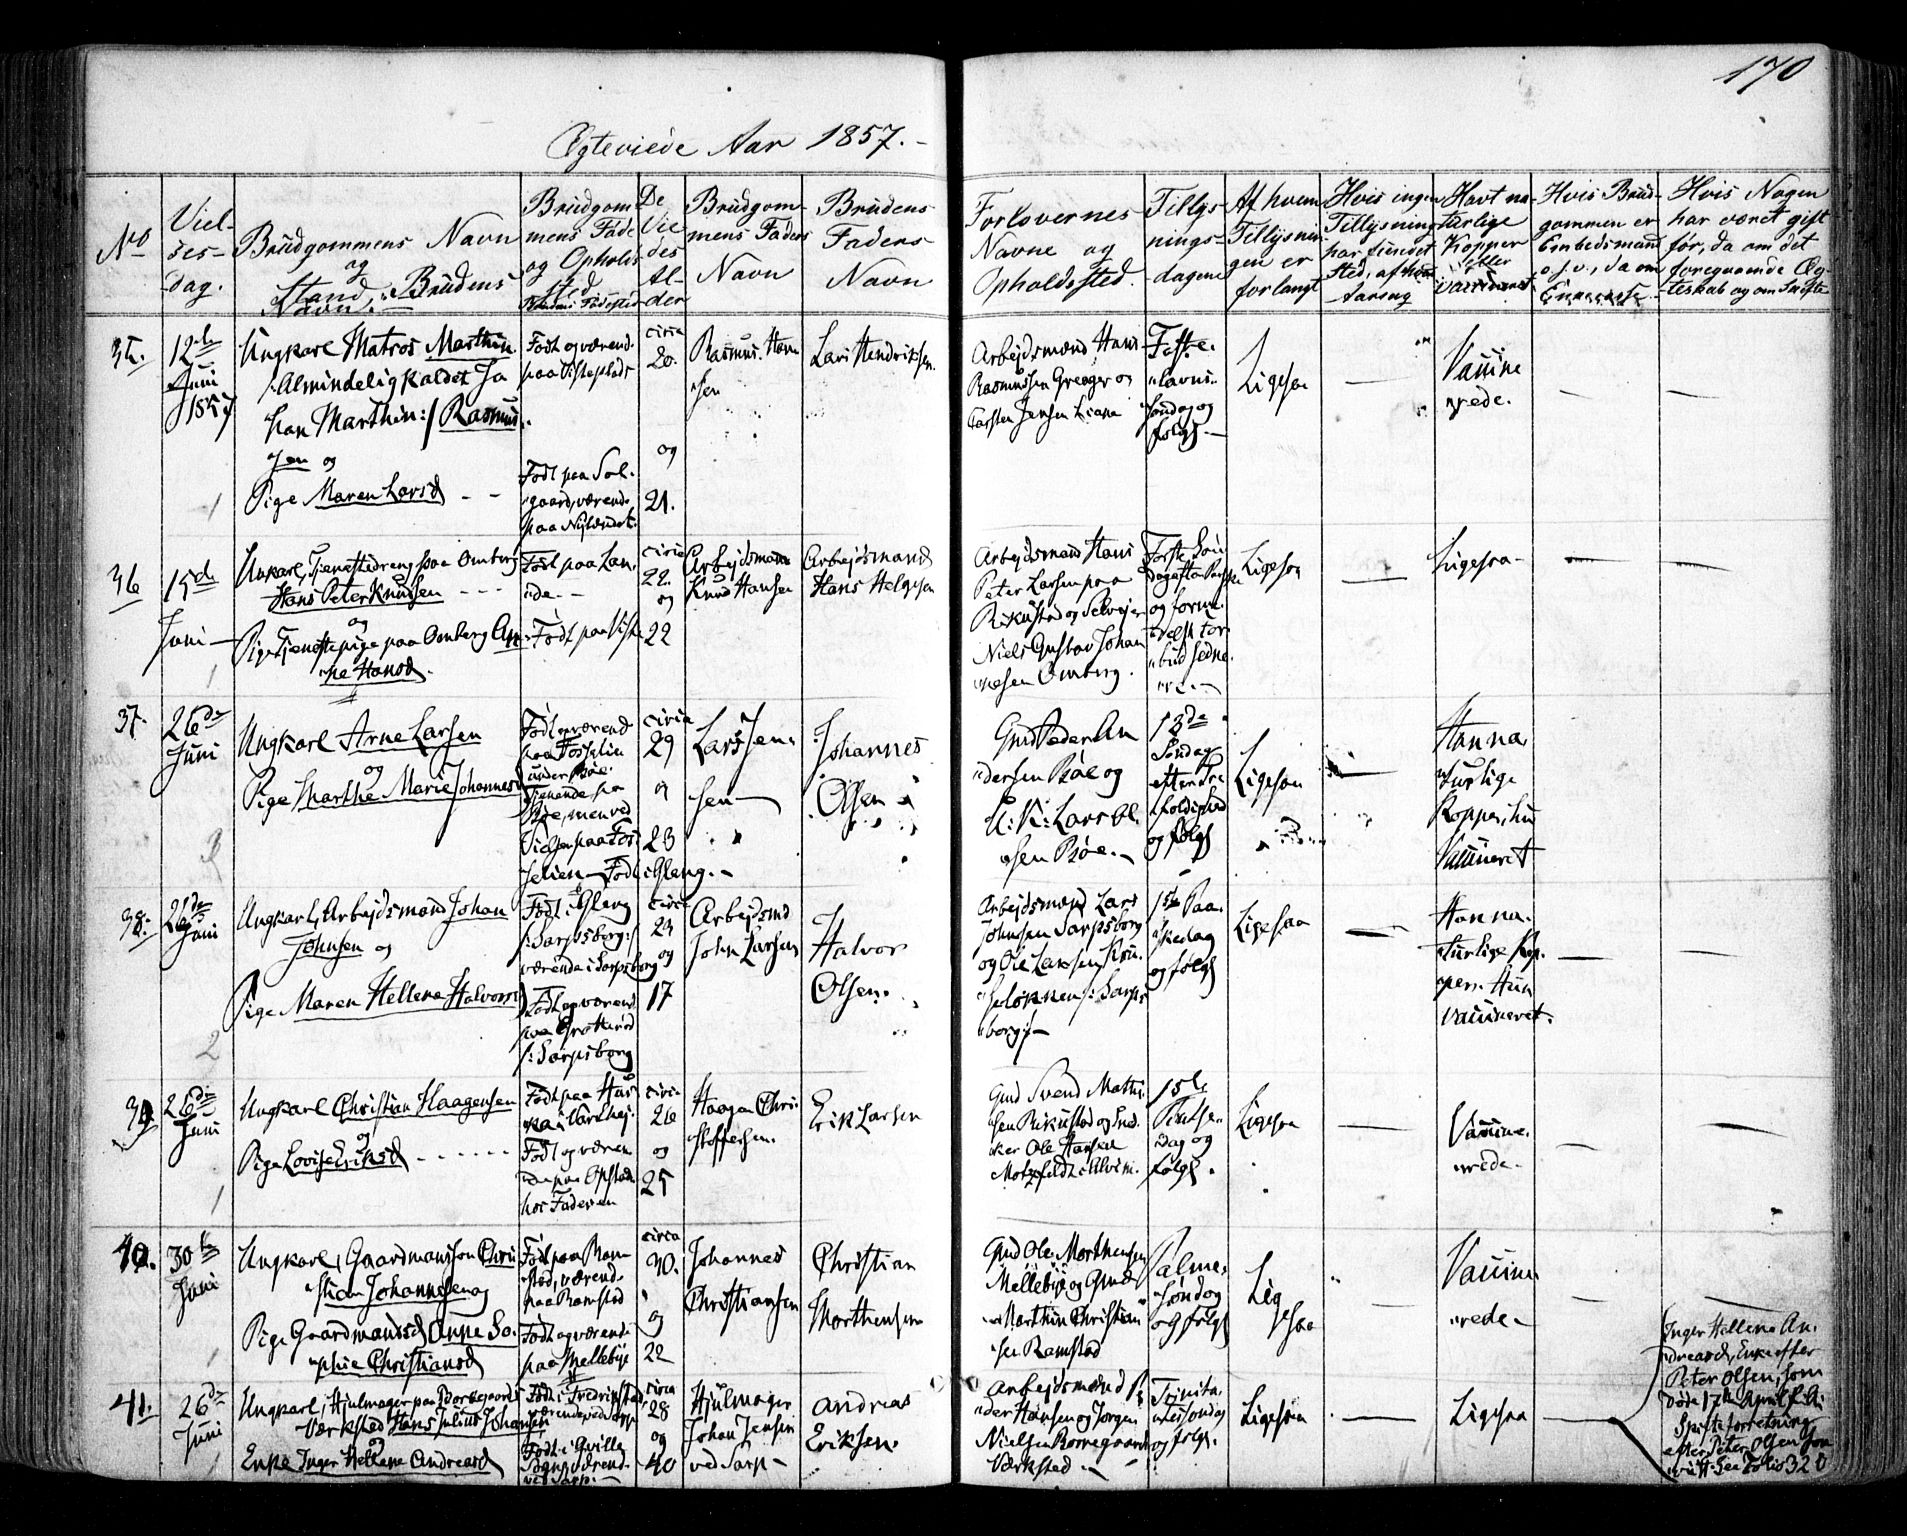 170
Ægteviede Aar 1857.
No
Viel-
ses-
dag.
Brudgommens Navn
og
Stand, Brudens
Navn.
Brudgom-
mens Føde
og Opholds
sted
De
Vie
des
Al-
der
Brudgom-
mens Faders
Navn
Brudens
Faders
Navn
Forlovernes
Navne og
Opholdssted.
Tillys-
nings-
dagene
Af hvem
Tillysnin-
gen er
forlangt
Hvis ingen
Tillysning
har fundet
Sted, af hvad
Aarsag
Havt na-
turlige
Kopper
eller
vaccineret
Hvis Brud-
gommen er
Embedsmand
o.s.v., da om
Hvis Nogen
har været gift
før, da om det
foregaaende Æg-
teskab og om Skifte
35.
12te
Juni
1857
Ungkarl Matros Marthin
Almindelig kaldet Jo
han Marthin:/ Rasmus
sen og
Pige Maren Larsd
Født og værend.
Født paa Sol-
gaard, værend.
paa Nylændet.
circa
20.
og
21.
Rasmus Han
sen
Lars Hendriksen.
Arbejdsmand Hans
Rasmussen Greager og
Carsten Jensen Liane
Faste-
lavns
Søndag og
følgs.
Ligesaa
Vaccine
rede.
36
15de
Juni
Ungkarl, Tjenestedreng paa Omberg
Hans Peter Knudsen
og
Pige Tjenestepige paa Omberg An
ne Hansd.
circa
22.
og
22
Arbejdsmand
Knud Hansen
Arbejdsmand
Hans Helgesen
Arbejdsmand Hans
Peter Larsen paa
Niels Gustav Johan
nesen Omberg.
Ligesaa
Ligesaa
37.
26de
Juni
Ungkarl Arne Larsen
og
Pige Marthe Marie Johannesd
Født og værend
under Bøe.
Tjenende paa
Bøe, men ved
circa
29
og
23
Lars Jen
sen
Johannes
Olsen
Gmd Peder An
dersen Bøe og
sen Bøe.
18de
Søndag
efter Tre
foldighed
og følgs
Ligesaa
Han na
turlige
Kopper, hun
Vaccineret
38.
26de
Juni
Ungkarl, Arbejdsmand Johan
Johnsen og
Pige Maren Hellene Halvorsd
Født i Gleng
/: Sarpsborg:/
værende i Sarpsborg
Født og værend
paa Grotterød
/: Sarpsborg
circa
23
og
17
Arbejdsmd
John Larsen
Halvor
Olsen.
Arbejdsmand Lars
Johnsen Sarpsborg
og Ole Larsen Kru
seløkken /: Sarps
borg:/
1ste Paa-
skedag
og følgs
Ligesaa
Han na-
turlige Kop-
per. Hun
vaccineret.
39
26de
Juni
Ungkarl Christian Haagensen
og
Pige Lovise Eriksd
Født og væren
de paa Opstad
hos Faderen
circa
26
og
25
Haagen Chri-
stoffersen.
Erik Larsen
Gmd Svend Mathi-
sen Rikustad og Snd.
ker Ole Hansen
Motzfeldt i Alvim.
1ste
Pintse-
dag og
følgs.
Ligesaa
Vaccine-
rede.
40.
30te
Juni
Ungkarl, Gaardmandssøn Chri
stian Johannesen og
Pige Gaardmandsd Anne So-
phie Christiansd
Født paa Ram
stad, værend.
paa Ramstad
Født og værende
paa Mellebye
circa
30.
og
22
Johannes
Christiansen
Christian
Morthensen
Gmd Ole Morthensen
Mellebye og Gmd
Morthin Christian
sen Ramstad
Palme-
søndag
og følgs
Lig
esaa
Vaccine
rede
41.
26de
Juni
Ungkarl, Hjulmager paa Borregaards
Værksted Hans Julius Johansen
og
Enke Inger Hellene Andreasd
Født i Fredrikstad
værende ved Sarp
ved Sarp.
circa
28
og
40
Hjulmager
Johan Jensen
ved Sarp
Andreas
Eriksen.
Arbejdsmænd Pe
der Hansen og Jørgen
Nielsen Borregaards
Værksted.
Trinita-
tis søndag
og følgs.
Ligesaa
Ligesaa
Inger Hellene An-
dreasd, Enke efter
Peter Olsen, som
døde 17de April
Skifteforretning
efter Peter Olsen
See Folio 320